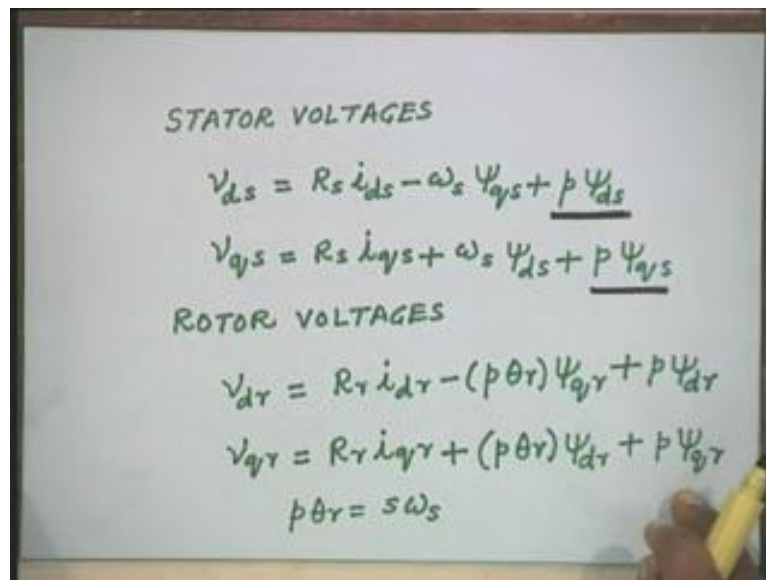 STATOR VOLTAGES
v_ds = R_s i_ds - ω_s Ψ_qs + pΨ_ds
v_qs = R_s i_qs + ω_s Ψ_ds + pΨ_qs
ROTOR VOLTAGES
v_dr = R_r i_dr - (pθ_r)Ψ_qr + pΨ_dr
v_qr = R_r i_qr + (pθ_r)Ψ_dr + pΨ_qr
pθ_r = sω_s